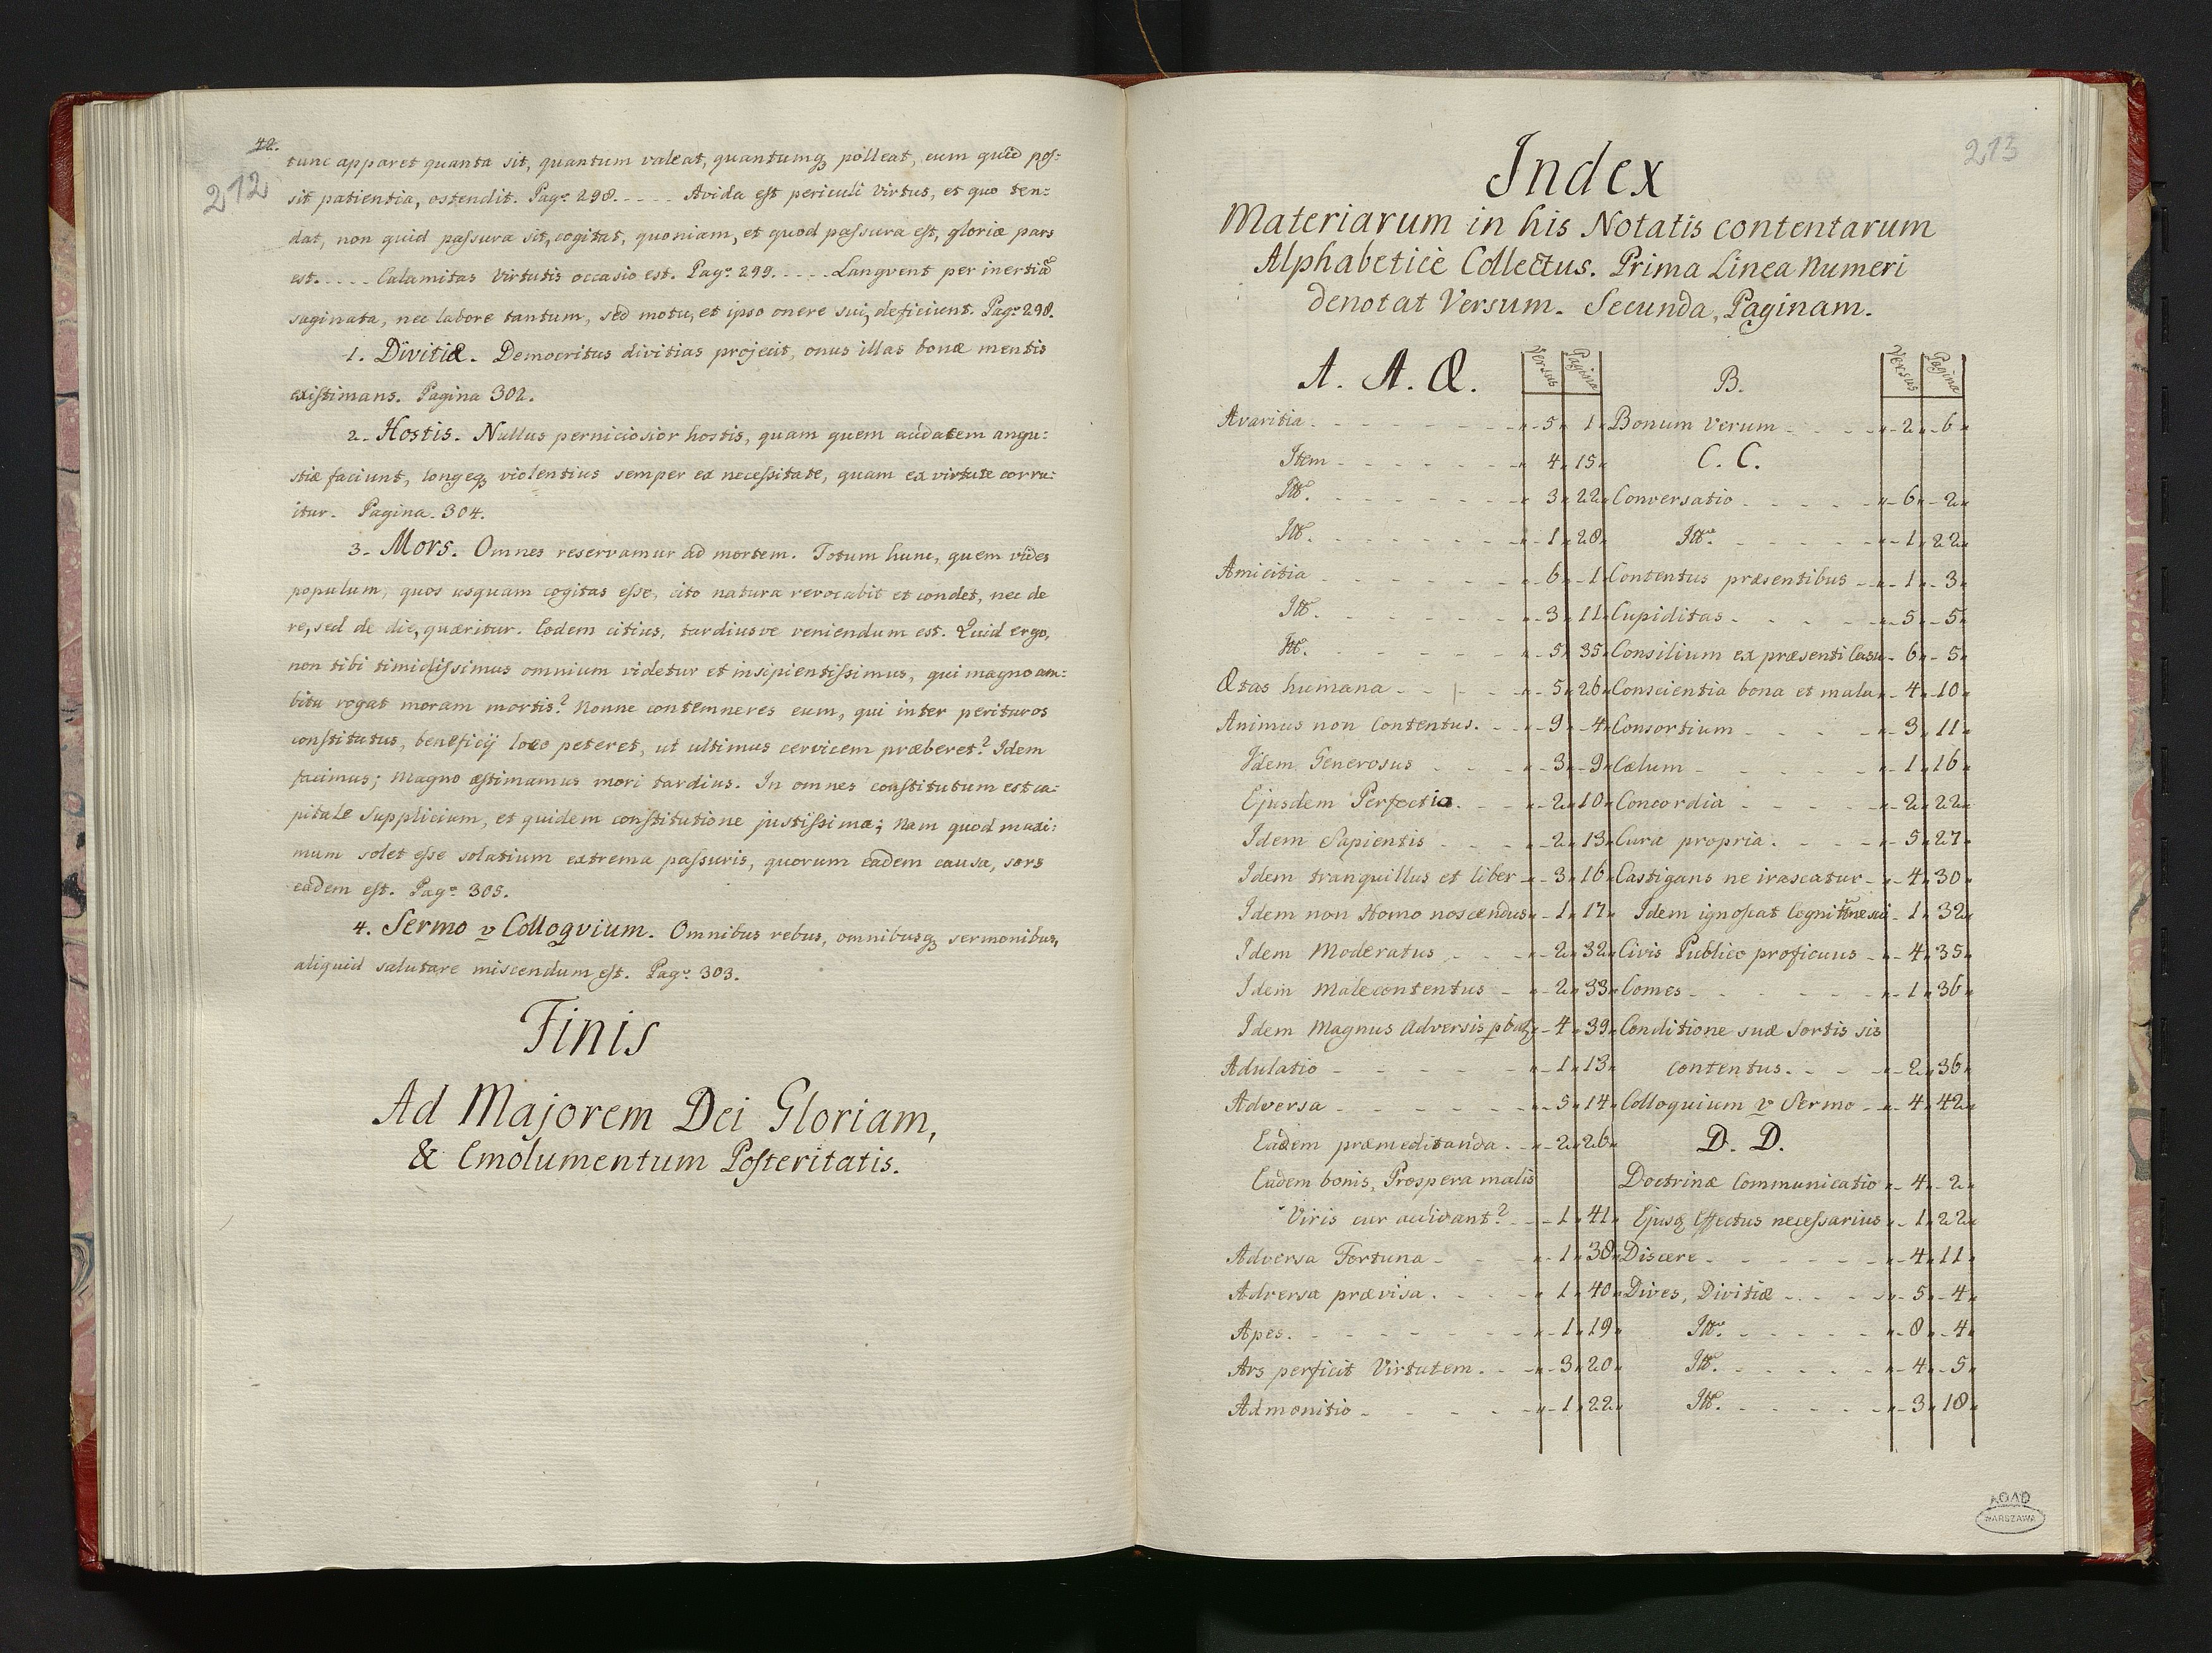 42.
212
tunc apparet quanta sit, quantum valeat, quantumq₃ polleat, cum quid pos:
sit patientia, ostendit. Pagᵃ 298. - - - - Avida est periculi Virtus, et quo ten:
dat, non quid passura sit, cogitat, quoniam, et quod passura est, gloriæ pars
est. - - - - Calamitas Virtutis occasio est. Pagᵃ 299. - - - - Langvent per inertiã
saginata, nec labore tantum, sed motu, et ipso onere sui, deficiunt. Pagᵃ 298.
1. Divitiæ. Democritus divitias projecit, onus illas bonæ mentis
existimans. Pagina 302.
2. Hostis. Nullus perniciosior hostis, quam quem audacem angu:
stiæ faciunt, longeq₃ violentius semper ex necessitate, quam ex virtute corru:
itur. Pagina. 304.
3. Mors. Omnes reservamur ad mortem. Totum hunc, quem vides
populum, quos usquam cogitas esse, cito natura revocabit et condet, nec de
re, sed de die, quæritur. Eodem citius, tardiusve veniendum est. Quid ergo,
non tibi timidissimus omnium videtur et insipientissimus, qui magno am:
bitu rogat moram mortis? Nonne contemneres eum, qui inter perituros
constitutus, beneficij loco peteret, ut ultimus cervicem præberet? Idem
facimus; Magno æstimamus mori tardius. In omnes constitutum est ca:
pitale Supplicium, et quidem constitutione justissima; Nam quod maxi:
mum solet esse solatium extrema passuris, quorum eadem causa, sors
eadem est. Pagᵃ 305.
4. Sermo v Colloqvium. Omnibus rebus, omnibusq₃ sermonibus,
aliquid salutare miscendum est. Pagᵃ 303.
Finis
Ad Majorem Dei Gloriam,
& Emolumentum Posteritatis.
213
Index
Materiarum in his Notatis contentarum
Alphabeticè Collectus. Prima Linea Numeri
denotat Versum. Secunda, Paginam.
A. A. Æ. Versus Pagina
Avaritia 5 1
Item 4 15
Itt. 3 22
Itt. 1 28
Amicitia 6 1
Itt. 3 11
Itt. 5 35
Ætas humana 5 26
Animus non Contentus. 9 4
Idem Generosus 3 9
Ejusdem Perfectio. 2 10
Idem Sapientis 2 13
Idem tranquillus et liber 3 16
Idem non Homo noscendus 1 17
Idem Moderatus 2 32
Idem Malecontentus 2 33
Idem Magnus Adversis 4 39
Adulatio 1 13
Adversa 5 14
Eadem præmeditanda. 2 26
Eadem bonis, Prospera malis
Viris cur accidant? 1 41
Adversa Fortuna 1 38
Adversa prævisa. 1 40
Apes. 1 19
Ars perficit Virtutem. 3 20
Admonitio 1 22
B. Versus Pagina
Bonum Verum 2 6
C. C.
Conversatio 6 2
Itt. 1 22
Contentus præsentibus 1 3
Cupiditas 5 5
Consilium ex præsenti Casu 6 5
Conscientia bona et mala 4 10
Consortium 3 11
Cælum 1 16
Concordia 2 22
Cura propria. 5 27
Castigans ne irascatur 4 30
Idem ignoscat Cognitiõne sui 1 32
Civis Publico proficuus 4 35
Comes 1 36
Conditione suæ Sortis sis
contentus. 2 36
Colloquium v Sermo 4 42
D. D.
Doctrinæ Communicatio 4 2
Ejusq₃ Effectus necessarius 1 22
Discere 4 11
Dives, Divitiæ 5 4
Itt. 8 4
Itt. 4 5
Itt. 3 18
AGAD
WARSZAWA